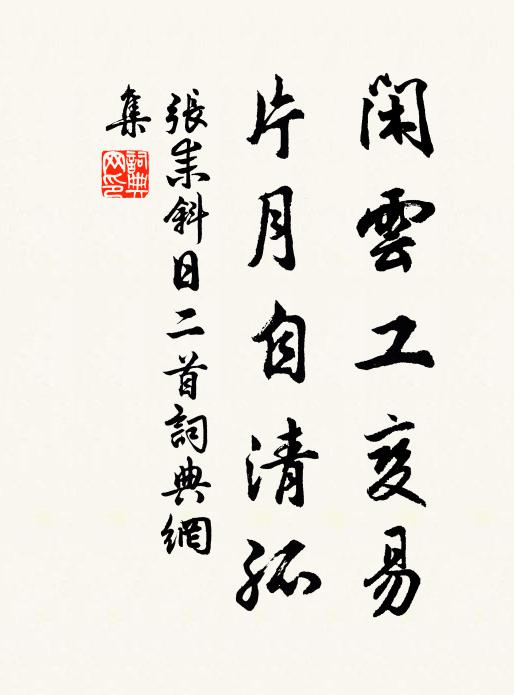 閑雲工變易
片月自清孤
張耒斜日二首詞典網
集
詞典
网印